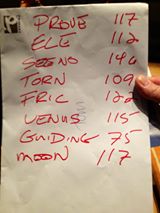 PROVE 117
ELE 112
NO
TORN 109
FRIC 122
VENUS 115
GUIDING 75
MOON 117